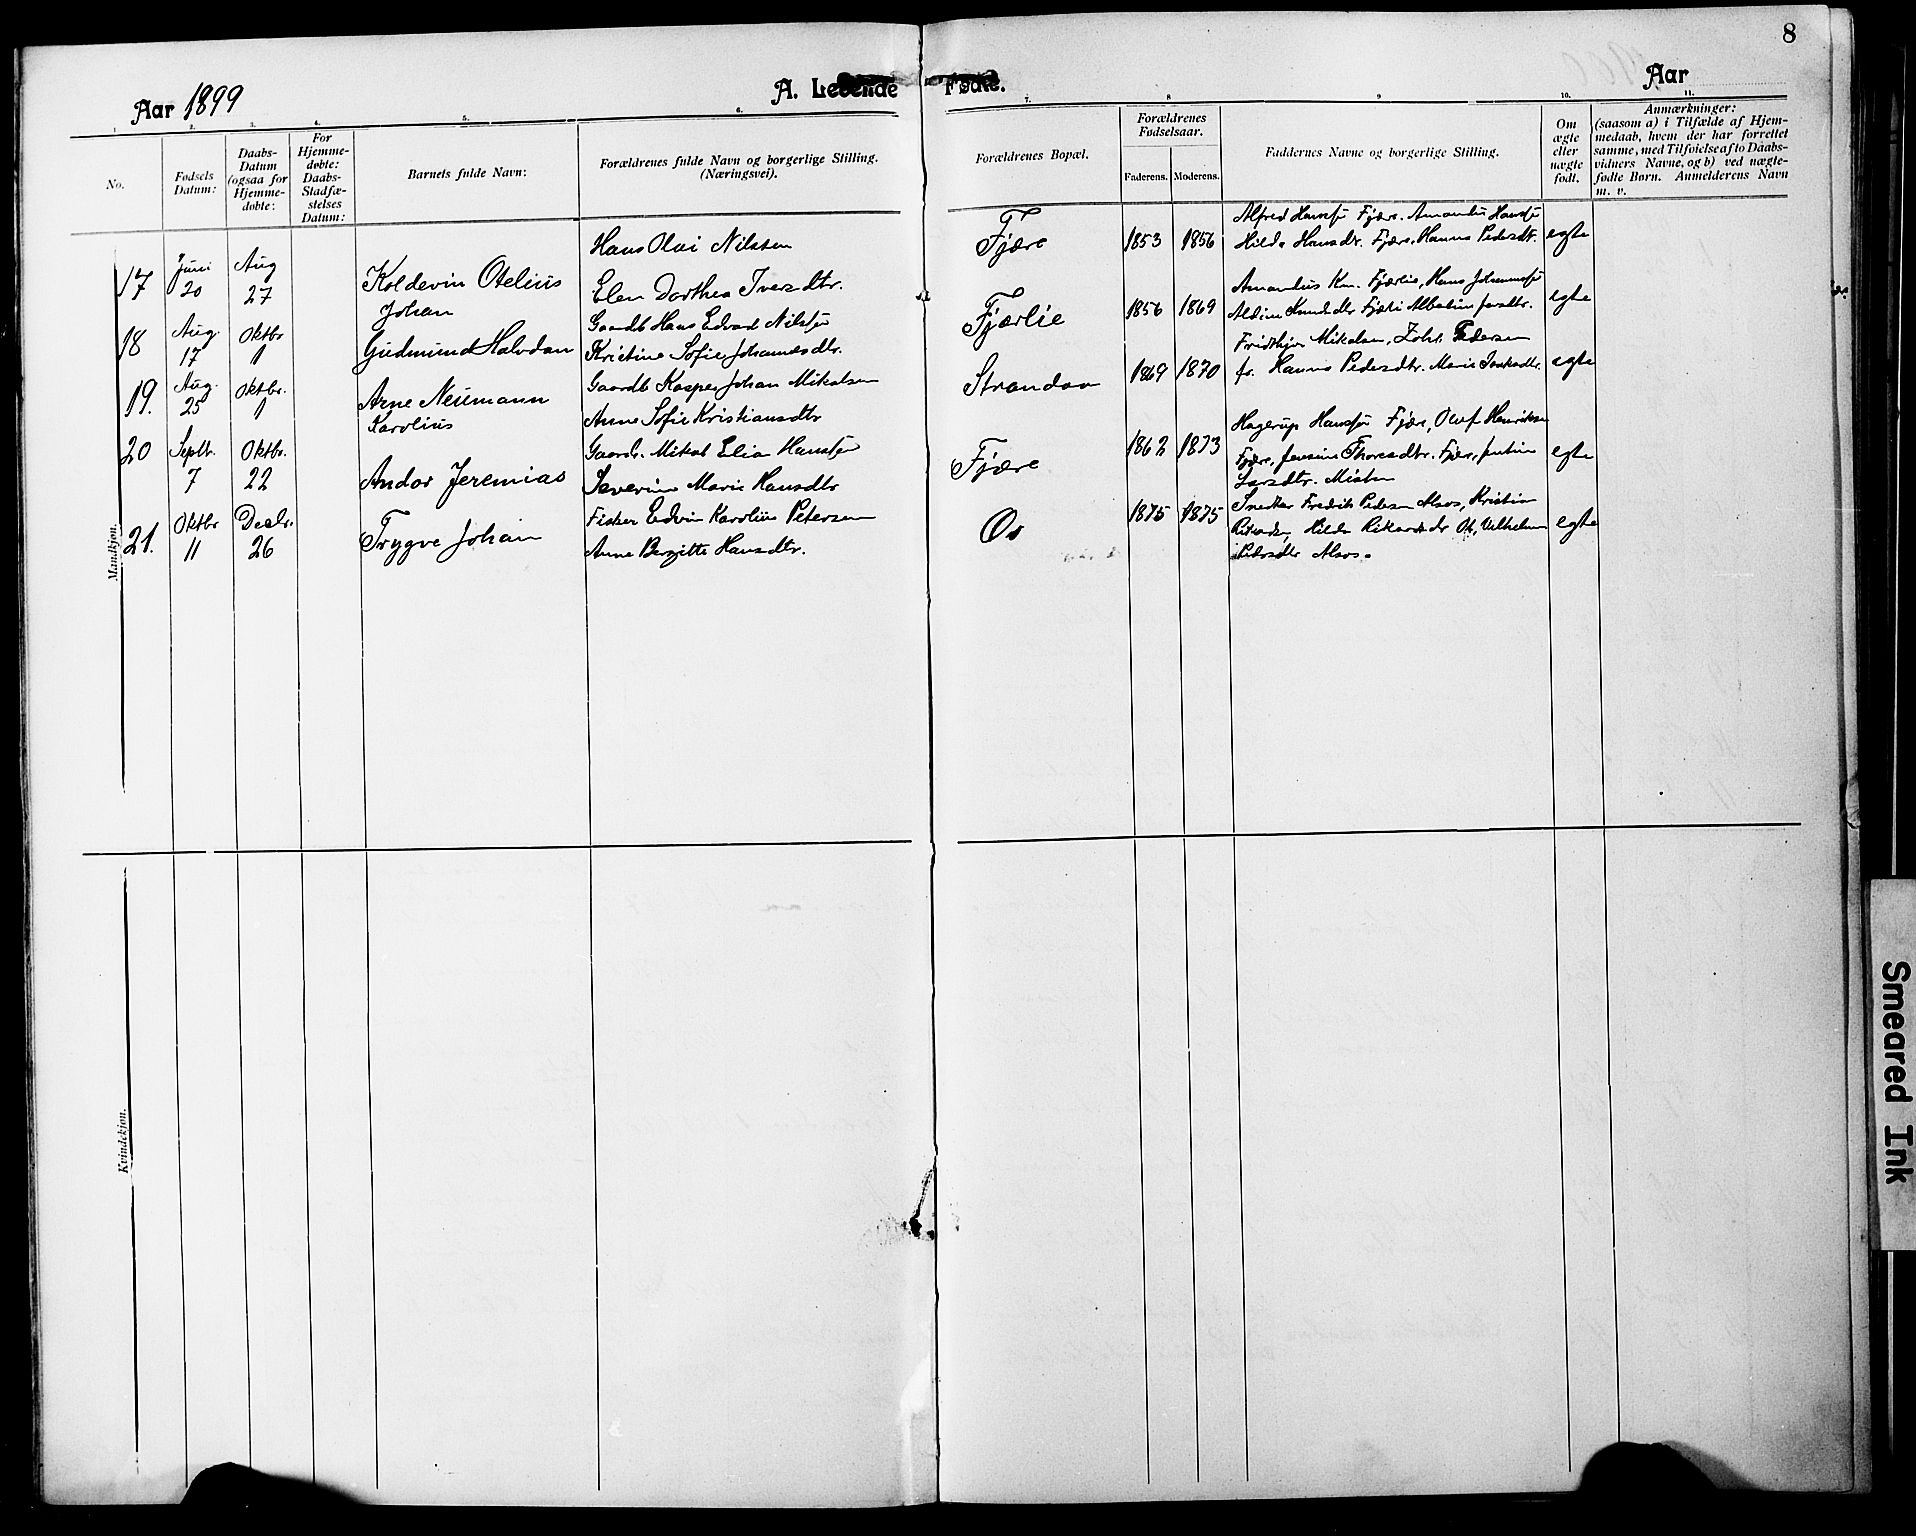 8
Aar 1899
A. Levende Fødte.
Aar
1. 2. 3. 4. 5. 6. 7. 8 9 10. 11.
No.
Fødsels Datum:
Daabs-Datum (ogsaa for Hjemme-døbte:
For Hjemme-døbte: Daabs-Stadfæ-stelses Datum:
Barnets fulde Navn:
Forældrenes fulde Navn og borgerlige Stilling. (Næringsvei).
Forældrenes Bopæl.
Forældrenes Fødselsaar.
Faderens. Moderens.
Faddernes Navne og borgerlige Stilling.
Om ægte eller uægte født.
Anmærkninger:
(saasom a) i Tilfælde af Hjem-
medaab, hvem der har forrettet
samme, med Tilføielse af to Daabs-
vidners Navne, og b) ved uægte-
fødte Børn. Anmelderens Navn
m. v.
Mandkjøn.
17 Juni 20 Aug 27 Koldevin Otelius Johan
Hans Olai Nilsen
Elen Dorthea Iversdtr.
Fjære 1853 1856
Alfred Hanssen Fjære. Amandus Hanssen
Hilda Hansdtr. Fjære. Hanna Pedersdtr. egte
18 Aug. 17 Oktbr 1 Gudmund Halvdan
Gaardb Hans Edvard Nilsen
Kristine Sofie Johannesdtr.
Fjærlie 1856 1869
Amandus Kn. Fjærlie, Hans Johannessen
egte
19. Aug. 25 Oktbr. 1 Arne Neumann Karolius
Gaardb Kasper Johan Mikalsen
Anne Sofie Kristiansdtr
Strandaa 1869 1870
Fridthjov Mikalsen, Pedersen
fr. Hanna Pedersdtr. Marie egte
20 Septbr. 7 Oktbr. 22 Andor Jeremias
Gaardb. Mikal Elia Hanssen
Severine Marie Hansdtr
Fjære 1862 1873
Hagerup Hanssen Fjære, Olaf Henriksen
Fjære, Jensine Thoresdtr. Fjære, egte
Larsdtr. Misten
21. Oktbr 11 Decbr. 26 Trygve Johan
Fisker Edvin Karolius Petersen
Anne Bergitte Hansdtr.
Os 1875 1875
Snedker Fredrik Pedersen Alsos, Kristian
Rikardsen, Hilda Rikardsdtr Os, Vilhelmine egte
Pedersdtr Alsos.
Kvindekjøn.
Smeared Ink